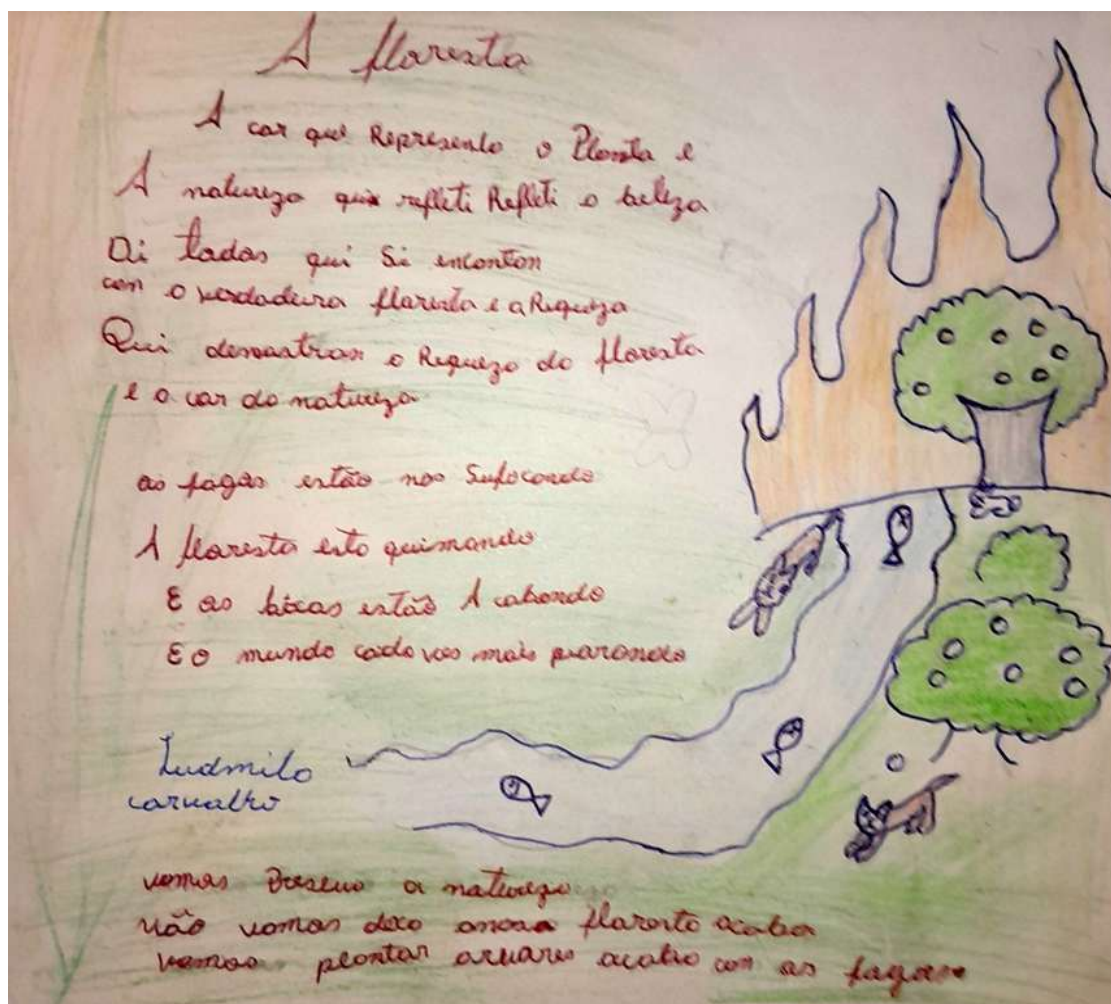 A floresta
A cor que Representa o Planta e
A natureza que refleti Refleti a beleza
Di todos qui Si enconton
con o verdadeira floresta e a Riqueza
Qui demostran o Riqueza do floresta
e a cor da natureza
as fogos estão nos Sufocando
A floresta esta queimando
E os bixos estão A cabando
E o mundo cada ves mais parando
Ludmila
carvalho
vamos a natureza
não vamos floresta acaba
vamos plantar acaba con os fogos